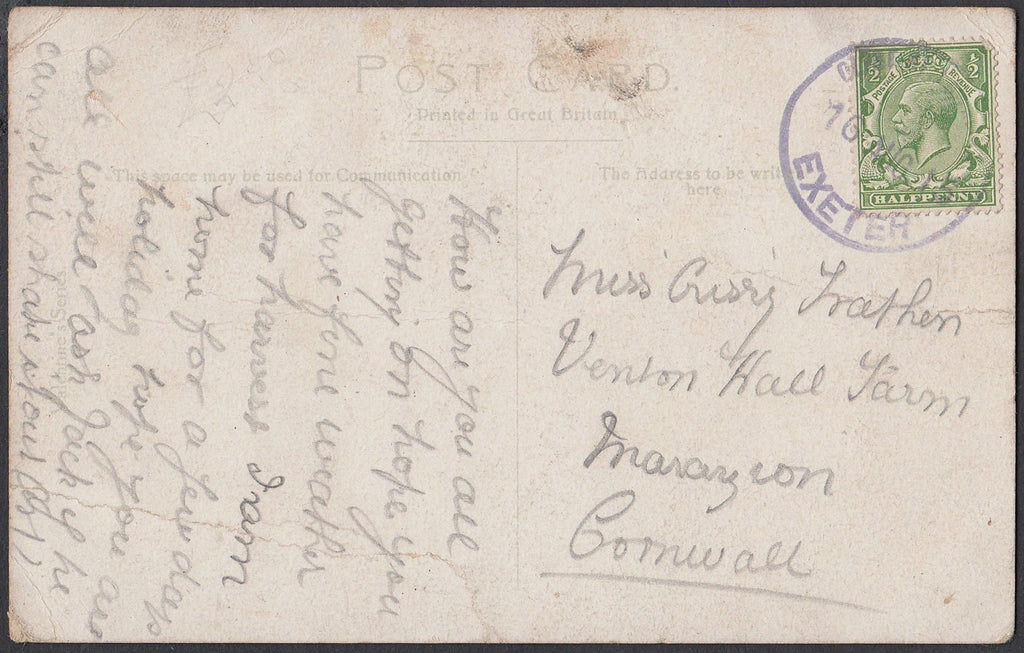 POST CARD.
Printed in Great Britain
This space may be used for Communication
The Address to be writ
here.
½ ½
POSTAGE REVENUE
HALFPENNY
EXETER
Miss Cissy Trathen
Venton Hall Farm
Marazion
Cornwall
How are you all
getting on hope you
have fine weather
for harvest I am
home for a few days
holiday hope you are
all well ask Jacky if he
can still skate